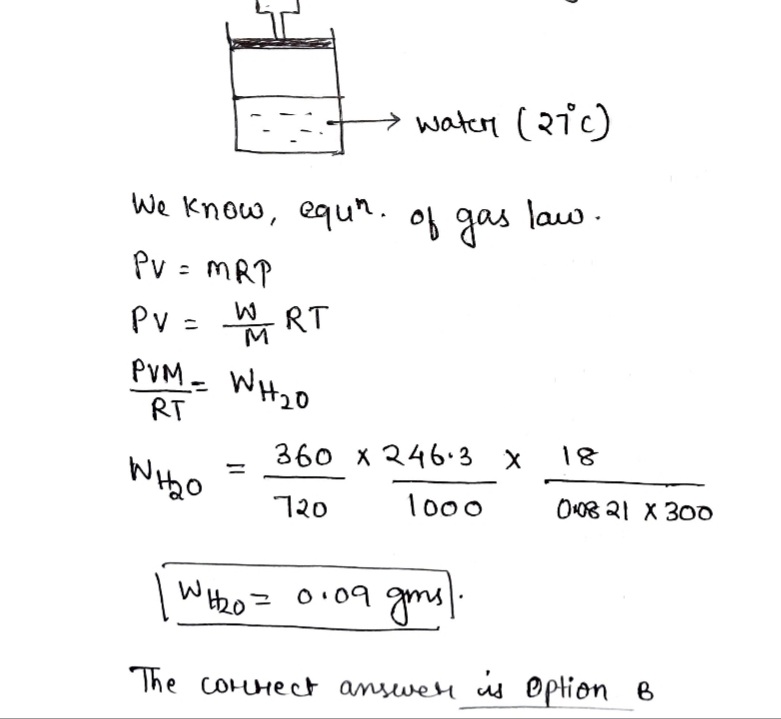 water (27°C)
We know, equⁿ. of gas law.
PV = mRP
PV = W/M RT
PVM/RT = W H₂O
W H₂O = 360/720 x 246.3/1000 x 18/0.0821 x 300
W H₂O = 0.09 gms.
The correct answer is Option B